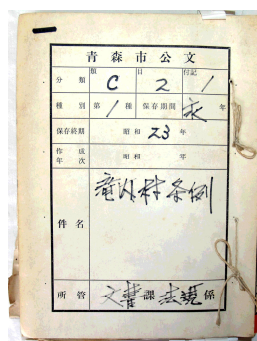 青森市公文
分類 類 C 目 2 付記 1
種別 第1種 保存期間 永年
保存終期 昭和 23 年
作成年次 昭和 年
件名 滝内村条例
所管 文書課 法規 係